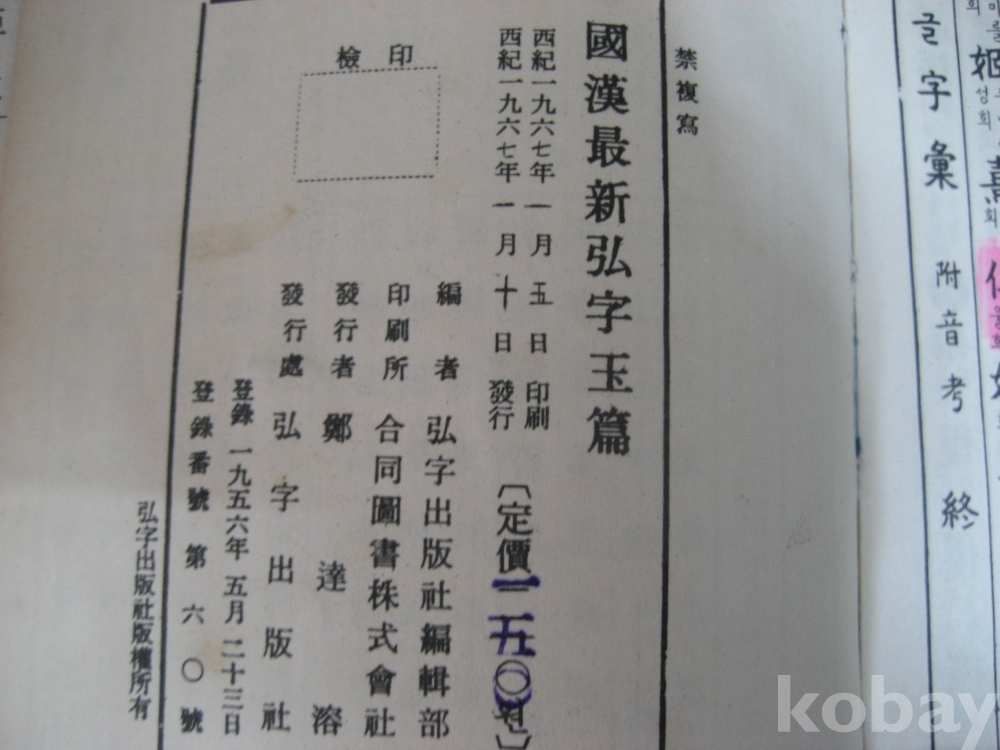 글字彙 附音考 終
禁複寫
國漢最新弘字玉篇
西紀一九六七年一月五日 印刷
西紀一九六七年一月十日 發行
〔定價 一五〇원〕
編者 弘字出版社編輯部
印刷所 合同圖書株式會社
發行者 鄭達溶
發行處 弘字出版社
檢印
登錄 一九五六年 五月 二十三日
登錄番號 第六〇號
弘字出版社版權所有
kobay